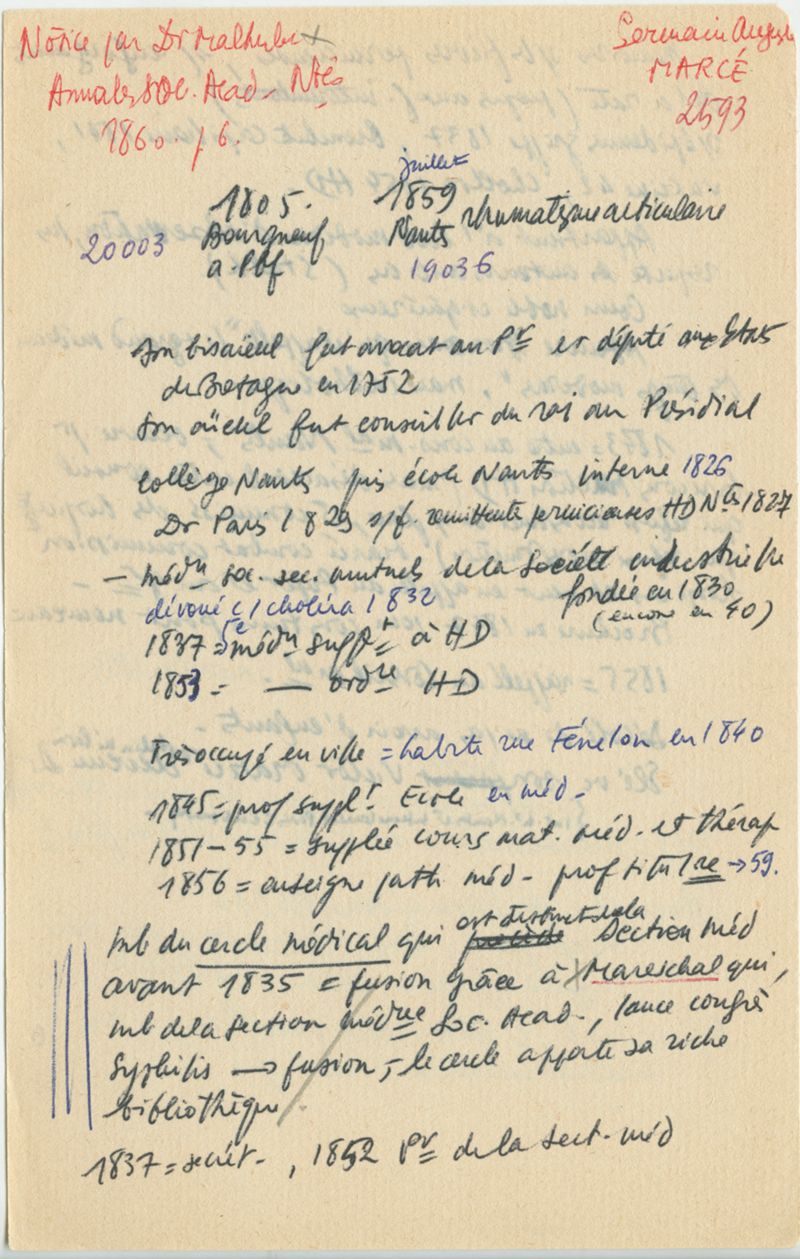 Notice par Dr Malherbe x
Annales Soc. Acad. Ntes
1860. p 6.
Germain Auguste
MARCÉ
2593
juillet
1805. 1859 rhumatisme articulaire
20003 Bourgneuf Nantes
a. Pbf 19036
Son bisaïeul fut avocat au Pr et député aux Etats
de Bretagne en 1752
Son aïeul fut conseiller du roi au Présidial
Collège Nantes puis école Nantes interne 1826
Dr Paris 1829 s/f. remittente pernicieuses HD Ntes 1827
— médn soc. sec. mutuels de la Société industrielle
fondée en 1830
dévoué c/ choléra 1832 (encore en 40)
1837 = 5e médn supplt à HD
1853 = — ordre HD
Très occupé en ville = habite rue Fénelon en 1840
1845 = prof supplt Ecole en méd -
1851-55 = supplée cours mat. méd. et thérap
1856 = enseigne path méd - prof titulre → 59.
est distinct de la
mb du cercle médical qui précède Section méd
avant 1835 = fusion grâce à x Mareschal qui,
mb de la section médque Soc. Acad., lance congrès
Syphilis → fusion, - le cercle apporte sa riche
bibliothèque
1837 = secrét - , 1852 Pr de la sect. méd